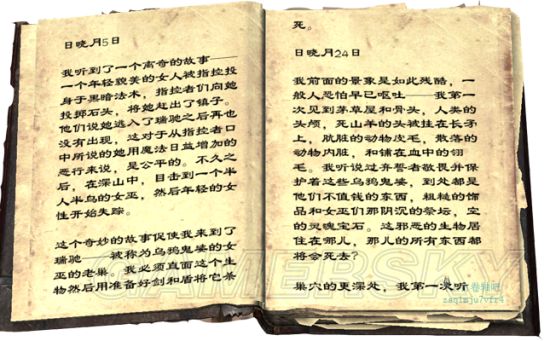 日晓月5日
我听到了一个离奇的故事——
一个年轻貌美的女人被指控投
身于黑暗法术，指控者们向她
投掷石头，将她赶出了镇子。
他们说她逃入了瑞驰之后再也
没有出现，这对于从指控者口
中所说的她用魔法日益增加的
恶行来说，是公平的。不久之
后，在深山中，目击到一个半
人半鸟的女巫，然后年轻的女
性开始失踪。
这个奇妙的故事促使我来到了
瑞驰——被称为乌鸦鬼婆的女
巫的老巢。我必须直面这个生
物然后用准备好剑和盾将它杀
死。
日晓月24日
我前面的景象是如此残酷，一
般人恐怕早已呕吐——我第一
次见到茅草屋和骨头，人类的
头颅，死山羊的头被挂在长矛
上，肮脏的动物皮毛，散落的
动物内脏，和铺在血中的翎
毛。我听说过弃誓者敬畏并保
护着这些乌鸦鬼婆，到处都是
他们不值钱的东西，粗糙的饰
品和女巫们那阴沉的祭坛，空
的灵魂宝石。这邪恶的生物居
住在哪儿，那儿的所有东西都
将会死去？
巢穴的更深处，我第一次听
GAMERSKY
上古卷轴吧